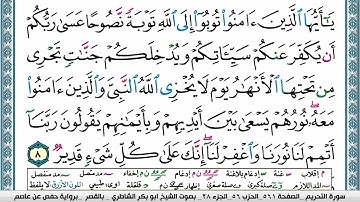 يَـٰٓأَيُّهَا ٱلَّذِينَ ءَامَنُوا۟ تُوبُوٓا۟ إِلَى ٱللَّهِ تَوْبَةً نَّصُوحًا عَسَىٰ رَبُّكُمْ
أَن يُكَفِّرَ عَنكُمْ سَيِّـَٔاتِكُمْ وَيُدْخِلَكُمْ جَنَّـٰتٍ تَجْرِى
مِن تَحْتِهَا ٱلْأَنْهَـٰرُ يَوْمَ لَا يُخْزِى ٱللَّهُ ٱلنَّبِىَّ وَٱلَّذِينَ ءَامَنُوا۟
مَعَهُۥ ۖ نُورُهُمْ يَسْعَىٰ بَيْنَ أَيْدِيهِمْ وَبِأَيْمَـٰنِهِمْ يَقُولُونَ رَبَّنَآ
أَتْمِمْ لَنَا نُورَنَا وَٱغْفِرْ لَنَآ ۖ إِنَّكَ عَلَىٰ كُلِّ شَىْءٍ قَدِيرٌ ٨
سورة التحريم - الصفحة ٥٦١ الحزب ٥٦ الجزء ٢٨ - بصوت الشيخ أبو بكر الشاطري - بالقصر - رواية حفص عن عاصم